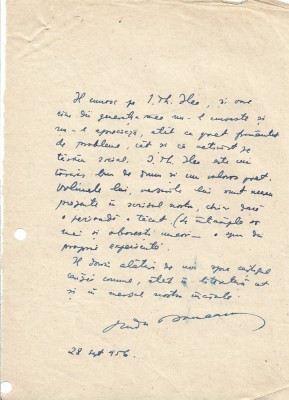 Îl cunosc pe I. Th. Ilea, și one
din generația mea nu-l cunoaște și
nu-l apreciază, atât ca poet frământat
de probleme, cât și ca activist pe
social. I. Th. Ilea este un
tovarăș bun de drum și un valoros poet.
Volumele lui, versurile lui sunt
prezente în scrisul nostru, chiar dacă
o perioadă a tăcut (se întâmplă să
mai și obosești uneori – o spun din
propria experiență
Îl doresc alături de noi spre câștigul
cauzei comune, atât în literatură cât
și în mersul nostru înainte.
28 sept 956